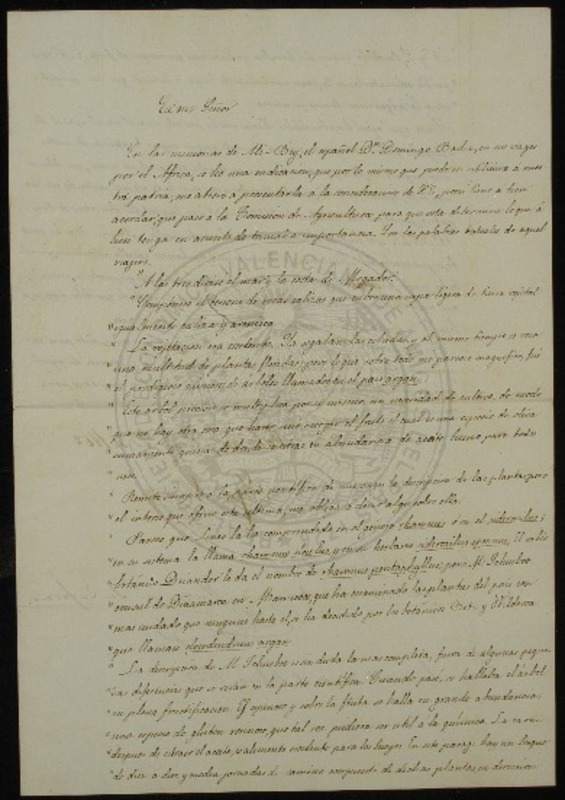 Exmo Señor
En las memorias de Ali-Bey, el español Dn. Domingo Badia, en sus viages
por el Africa, se lee una indicacion, que por lo mismo que puede ser util á nues
tra patria, me atrevo á presentarla á la consideracion de V.E. por si tiene á bien
acordar que pase á la Comision de Agricultura para que esta determine lo que á
bien tenga en asunto de tamaña importancia. Son las palabras testuales de aquel
viajero.
"A las tres divise el mar y la costa de Mogador.
"Componese el terreno de rocas calizas que cubre una capa ligera de tierra vejetal
"igualmente caliza y arenisca
" La vejetacion era
" una multitud de plantas floridas; pero lo que sobre todo me parecio magnifico, fué
" el prodigioso numero de arboles llamados en el pais argan.
" Este arbol precioso se multiplica por si mismo, sin necesidad de cultivo, de modo
" que no hay otra cosa que hacer sino recoger el fruto el cual es una especie de oliva
" sumamente gruesa de donde se estrae en abundancia de aceite bueno para todos
" usos.
" Remito siempre á la parte cientifica de mis viajes la descripcion de las plantas; pero
" el interes que ofrece esta ultima, me obliga á decir algo sobre ella.
" Parece que Lineo la ha comprendido en el genero rhamnus ó en el sideroxilus;
" en su sistema la llama rhamnus siculus y en su herbario sideroxilus spinosus. El sabio
" botánico Dryander le da el nombre de rhamnus pentaphyllus; pero M. Schusboe
" consul de Dinamarca en Marruecos, que ha examinado las plantas del pais con
" mas cuidado que ninguno hasta el, se ha decidido por los botánicos Retz y Wildenow
" que llaman eleodendrum argan
" La descripcion de M. Schusboe es sin duda la mas completa, fuera de algunas peque
" ñas diferencias que se verán en la parte cientifica. Cuando pasé, se hallaba el árbol
" en plena fructificacion. Es espinoso y sobre la fruta se halla en grande abundancia
" una especie de gluten resinoso, que tal vez pudiera ser util á la quimica.
" despues de estraer el aceite, es alimento escelente para los bueyes. En este parage hay un bosque
" de diez á diez y media jornadas de camino compuesto de dichas plantas, en direccion